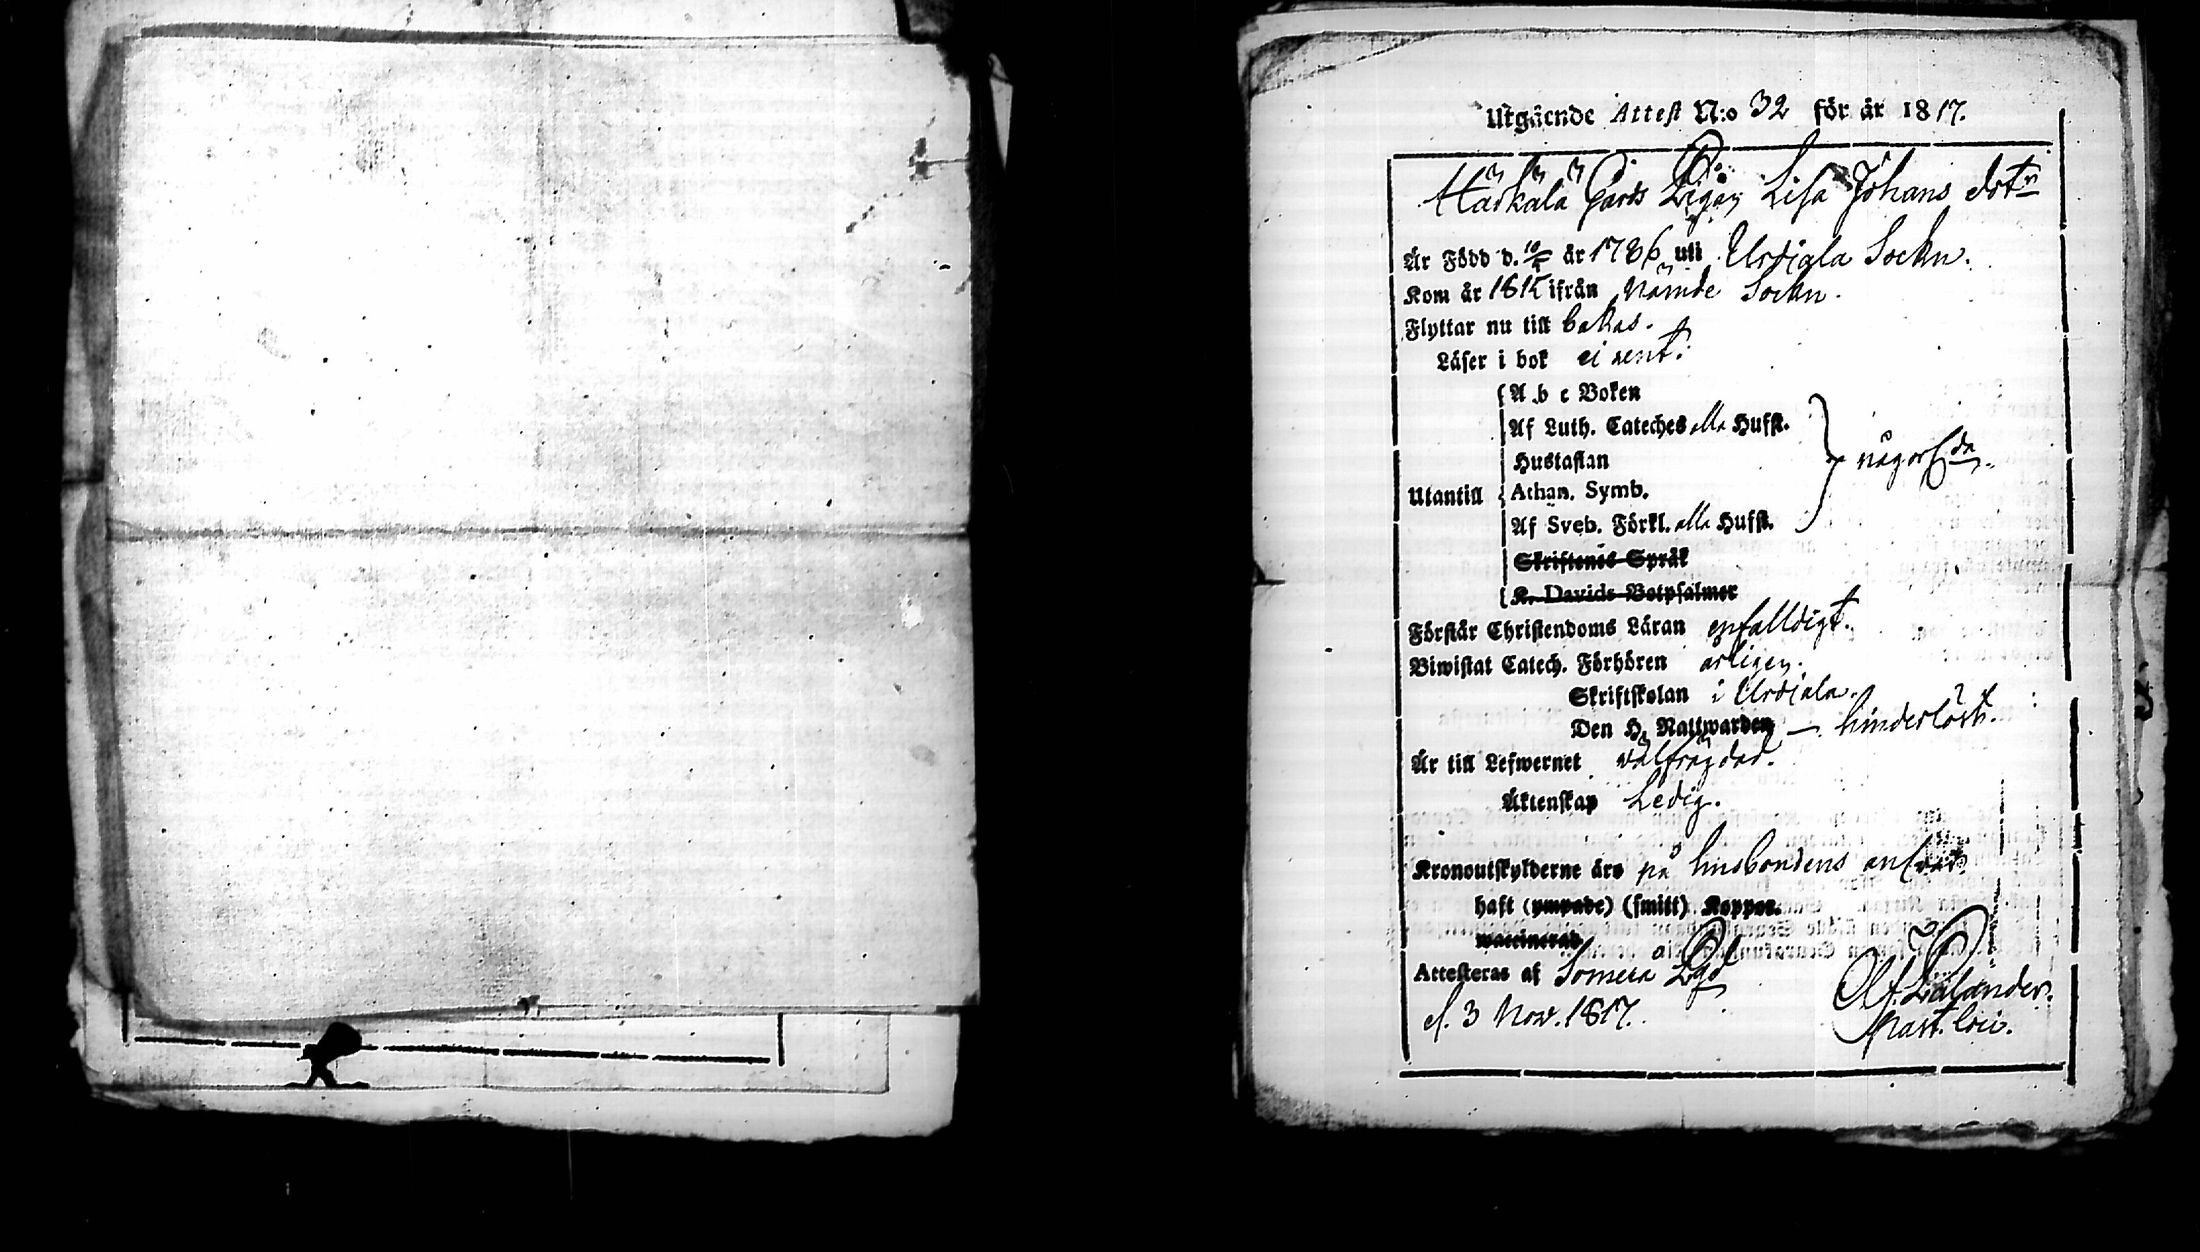 Utgående Attest N:o 32 för år 1817.
Härkälä Gårds Pigan Lisa Johans dotr
Är Född d. 10/5 år 1786 uti Urdiala Sockn.
Kom år 1815 ifrån Nämde Sockn.
Flyttar nu till bakas.
Läser i bok ei rent.
A b c Boken
Af Luth. Cateches alla Hufst.
Hustaflan
någorl:da
Utantill Athan. Symb.
Af Sveb. Förkl. alla Hufst.
Skriftenes Språk
K. Davids Botpsalmer
Förstår Christendoms Läran enfalldigt.
Biwistat Catech. Förhören årligen.
Skriftskolan i Urdiala.
Den H. Nattwarden — hinderlöst.
Är till Lefwernet välfrägdad.
Äktenskap Ledig.
Kronoutskylderne äro på husbondens ansvar.
haft (ympade) (smitt) Koppor.
waccinerad
Attesteras af Somero Pgd
d. 3 Nov. 1817.
Past. loci.